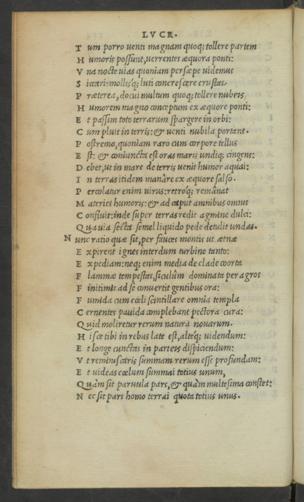 LVCR.
T um porro uenti magnam quoq; tollere partem
H umoris possunt, uerrentes æquora ponti:
V na nocte uias quoniam persæpe uidemus
S iccari: mollisq; luti concrescere crustas.
P ræterea, docui multum quoq; tollere nubeis
H umorem magno conceptum ex æquore ponti:
E t passim toto terrarum spargere in orbi:
C um pluit in terris: & uenti nubila portant.
P ostremo, quoniam raro cum corpore tellus
E st: & coniuncta est oras maris undiq; cingens:
D ebet, ut in mare de terris uenit humor aquai:
I n terras itidem manare ex æquore salso.
P ercolatur enim uirus: retroq; remanat
M ateries humoris: & ad caput amnibus omnis
C onfluit: inde super terras redit agmine dulci:
Q ua uia secta semel liquido pede detulit undas.
N unc ratio quæ sit, per fauces montis ut ætnæ
E xpirent ignes interdum turbine tanto:
E xpediam: neq; enim media de clade coorta
F lammæ tempestas, siculûm dominata per agros
F initimis ad se conuertit gentibus ora:
F umida cum cæli scintillare omnia templa
C ernentes pauida complebant pectora cura:
Q uid moliretur rerum natura nouarum.
H isce tibi in rebus late est, alteq; uidendum:
E t longe cunctas in parteis dispiciendum:
V t reminiscaris summam rerum esse profundam:
E t uideas cælum summai totius unum,
Q uàm sit paruula pars, & quàm multesima constet:
N ec sit pars homo terrai quota totius unus.